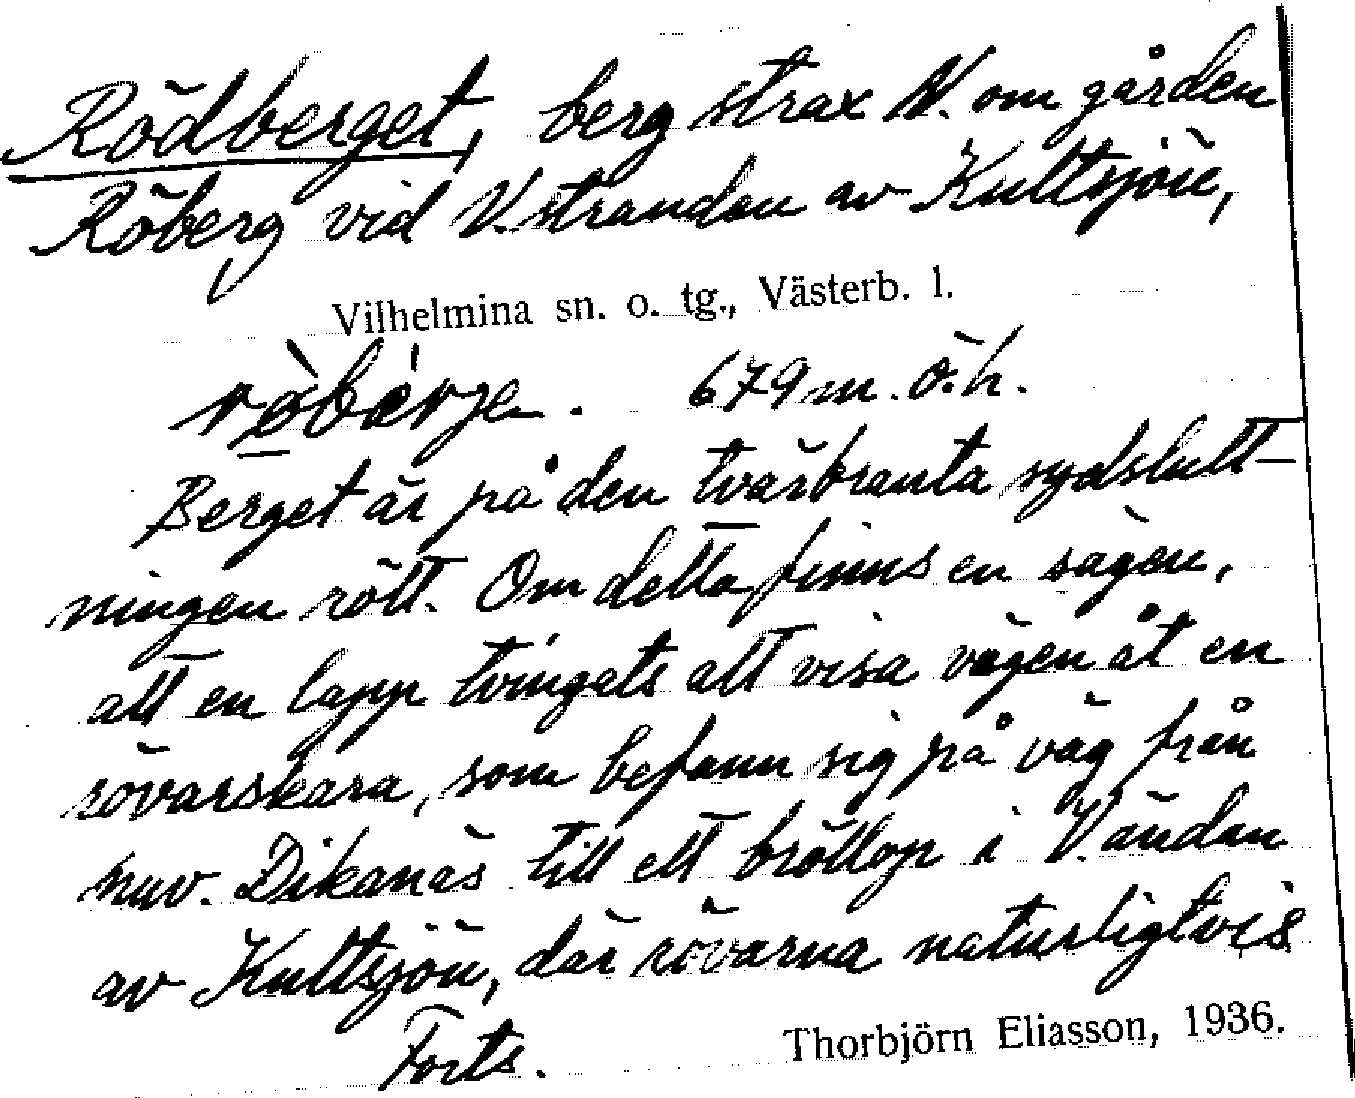 Rödberget, berg strax N. om gården
Röberg vid V. stranden av Kultsjön,
Vilhelmina sn. o. tg., Västerb. l.
679 m. ö. h.
Berget är på den tvärbranta sydslutt-
ningen rött. Om detta finns en sägen,
att en lapp tvingats att visa vägen åt en
rövarskara, som befann sig på väg från
nuv. Dikanäs till ett bröllop i V. ändan
av Kultsjön, där rövarna naturligtvis
Forts.
Thorbjörn Eliasson, 1936.